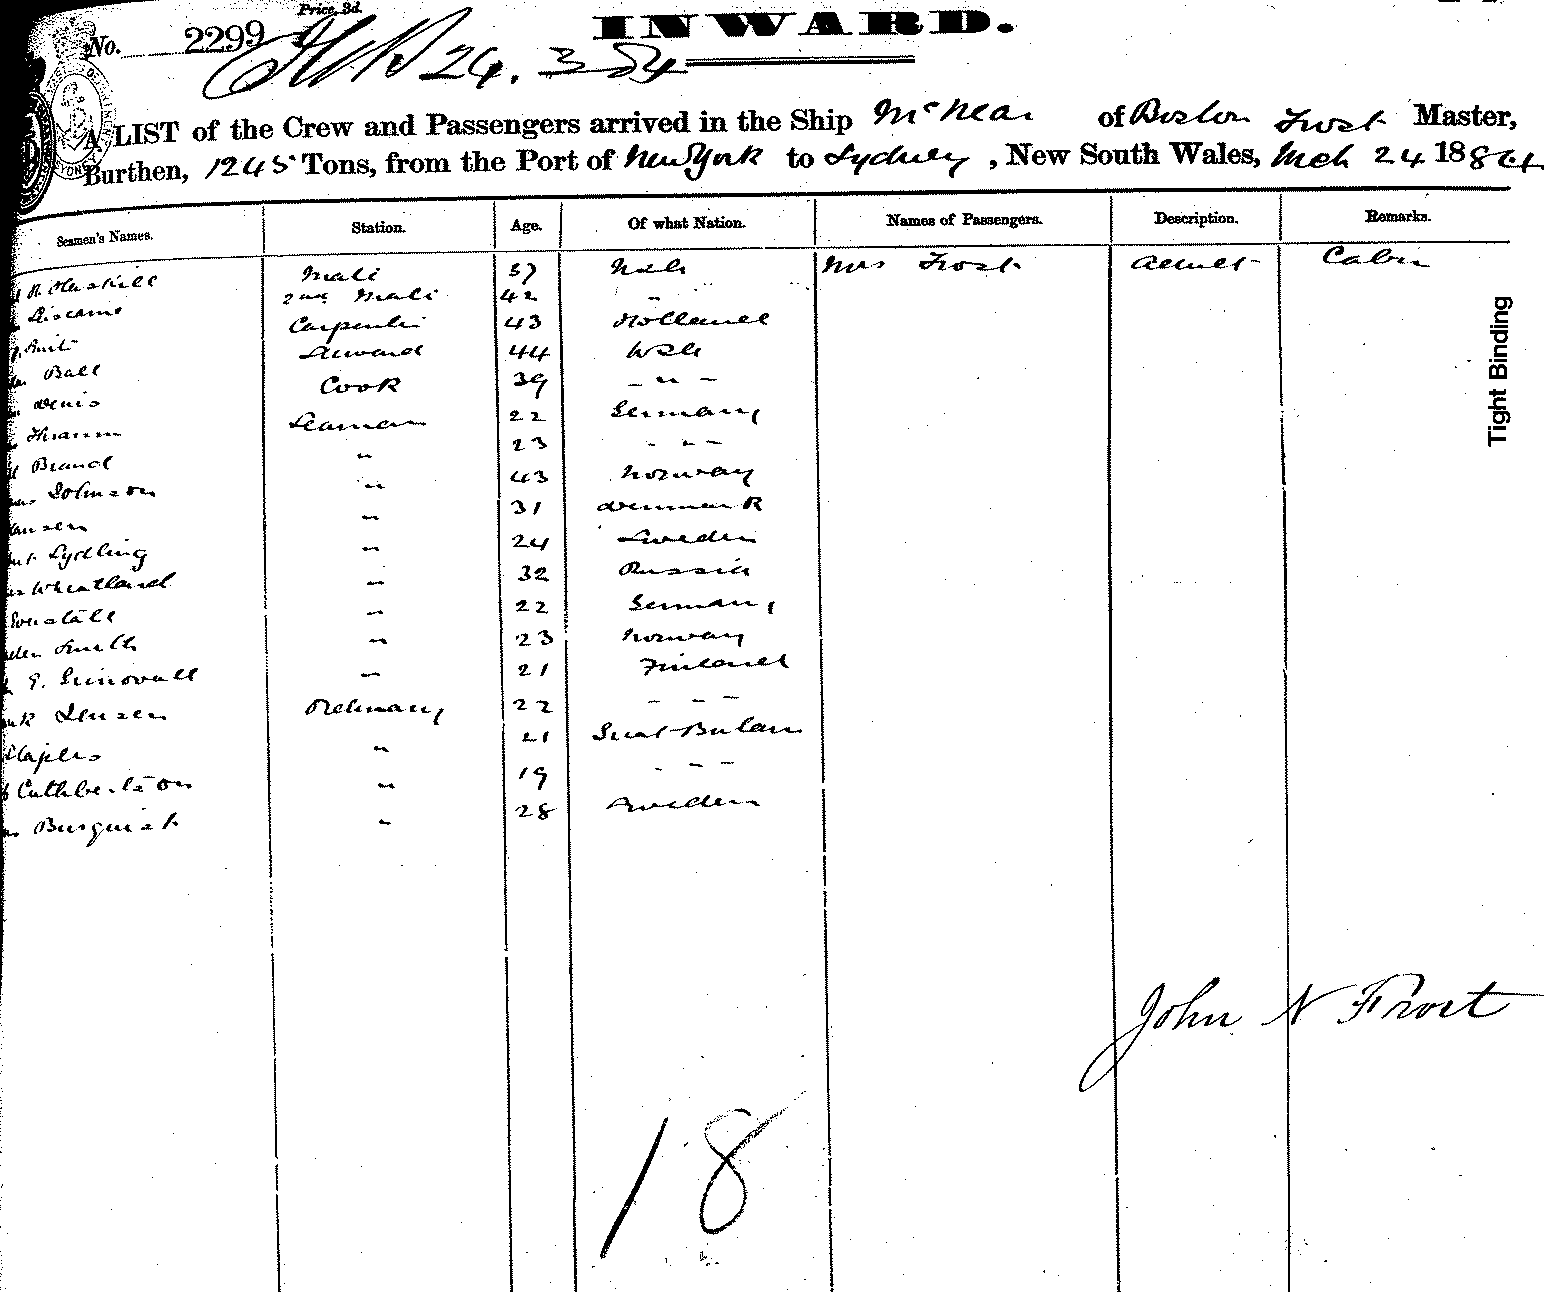 Price, 3d.
No. 2299
INWARD.
24. 3 84
A LIST of the Crew and Passengers arrived in the Ship McNear of Boston Frost Master,
Burthen, 1245 Tons, from the Port of New York to Sydney, New South Wales, Mch 24 1884
Seamen's Names. Station. Age. Of what Nation. Names of Passengers. Description. Remarks.
Haskill Mate 37 Mrs Frost Adult Cabin
2nd Mate 42 "
Carpenter 43 Holland
Ball Steward 44
Denis Cook 39 - " -
Seaman 22 Germany
Brand " 23 - - -
Johnson " 43 Norway
Hansen " 31 Denmark
Lydling " 24 Sweden
Wheatland " 32 Russia
" 22 Germany
Smith " 23 Norway
E. " 21 Finland
Jensen Ordinary 22 - - -
Staples " 21 Great Britain
Cuthbertson " 19 - - -
Burquist " 28 Sweden
Tight Binding
John N Frost
18